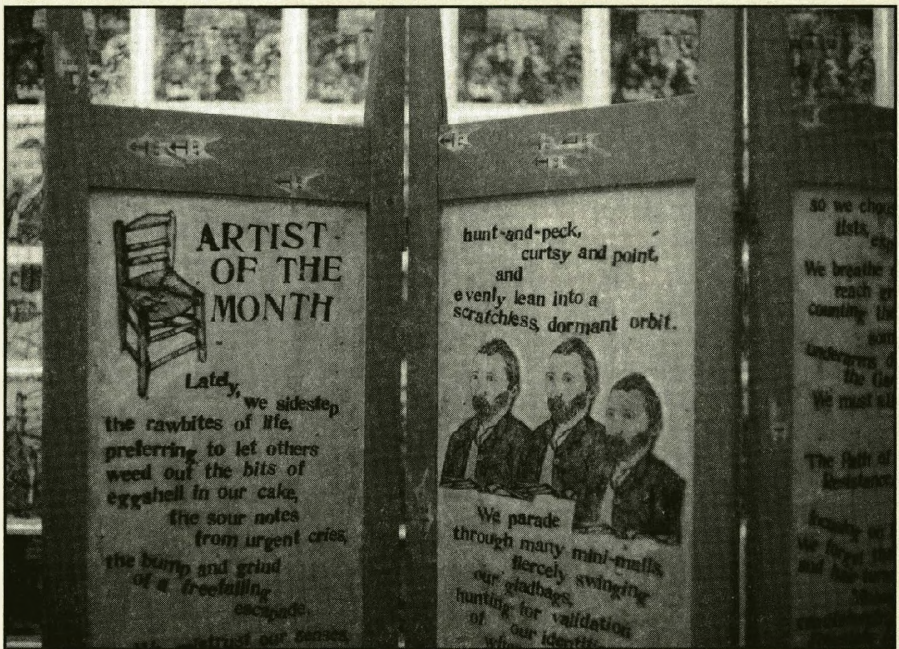 ARTIST
OF THE
MONTH
Lately,
we sidestep
the rawbites of life,
preferring to let others
weed out the bits of
eggshell in our cake,
the sour notes
from urgent cries,
the bump and grind
of a freefalling
escapade.
mistrust our senses,
hunt-and-peck,
curtsy and point,
and
evenly lean into a
scratchless, dormant orbit.
We parade
through many mini-malls,
fiercely swinging
our gladbags,
hunting for validation
of our
so we
lists,
We breathe
reach
counting
underarms
the
We must
The Path of
Resistance
We forget
and